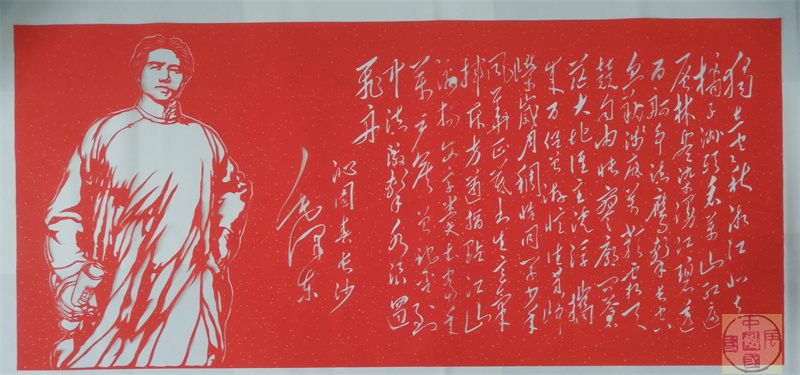 独立寒秋湘江北去
橘子洲头看万山红遍
层林尽染漫江碧透
百舸争流鹰击长空
鱼翔浅底万类霜天
竞自由怅寥廓问苍
茫大地谁主沉浮携
来百侣曾游忆往昔峥
嵘岁月稠恰同学少年
风华正茂书生意气
挥斥方遒指点江山
激扬文字粪土当年
万户侯曾记否到
中流击水浪遏
飞舟
沁园春长沙
毛泽东